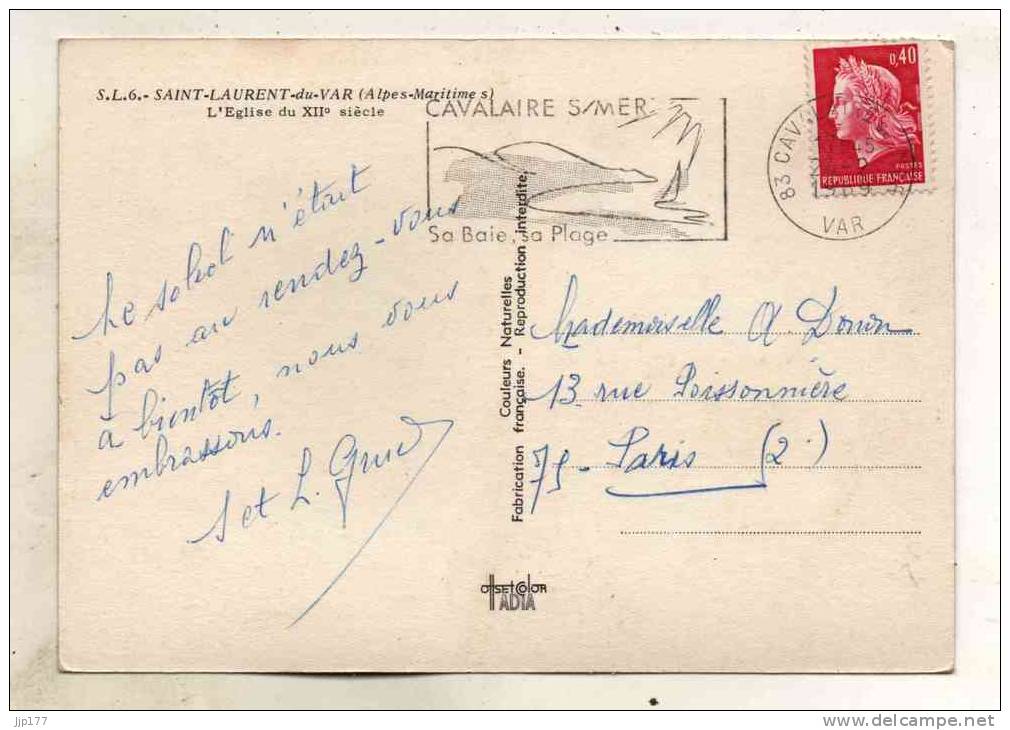 S.L.6.- SAINT-LAURENT-du-VAR (Alpes-Maritimes)
L'Eglise du XIIe siècle
CAVALAIRE S/MER
Sa Baie, sa Plage
83 CAV
VAR
0,40
POSTES
REPUBLIQUE FRANÇAISE
Le soleil n'était
pas au rendez-vous
à bientôt, nous vous
embrassons.
S et L.
Couleurs Naturelles
Fabrication française. - Reproduction interdite.
Mademoiselle A.
13 rue Poissonnière
75 - Paris (2.)
OffsetColor
ADIA
jjp177
www.delcampe.net